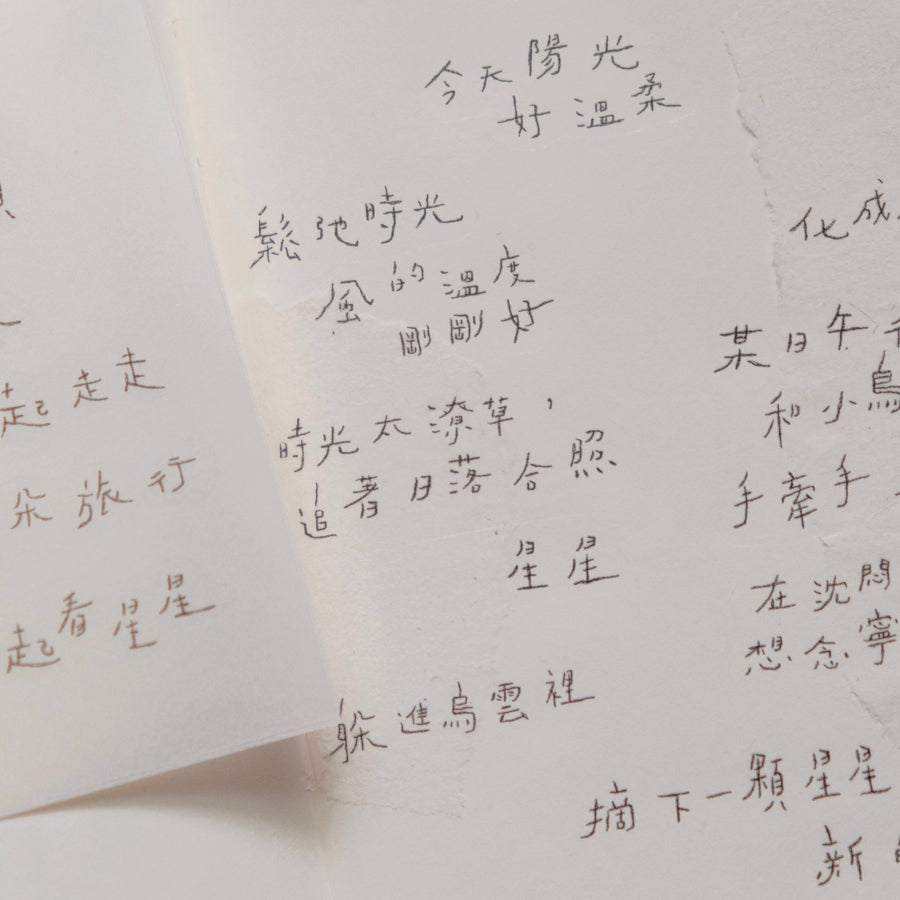 起走走
朵旅行
起看星星
今天陽光
好溫柔
鬆弛時光
風的溫度
剛剛好
時光太潦草,
追著日落合照
星星
躲進烏雲裡
化成
某日午
和小鳥
手牽手
在沈悶
想念寧
摘下一顆星星
新